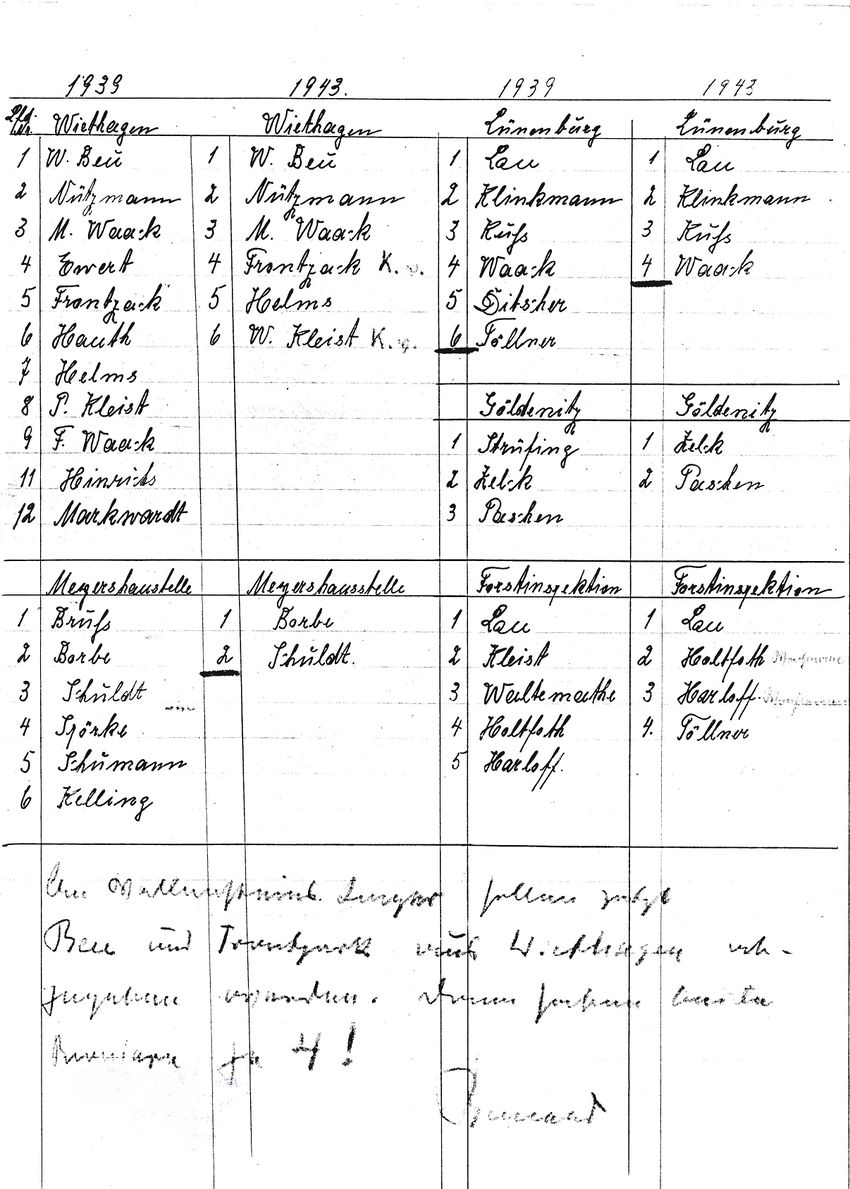 1939 1943. 1939 1943
Lfd. Nr. Wiethagen Wiethagen Lünenbürg Lünenbürg
1 W. Beu 1 W. Beu 1 Lau 1 Lau
2 Nützmann 2 Nützmann 2 Klinkmann 2 Klinkmann
3 M. Waack 3 M. Waack 3 Kufs 3 Kufs
4 Ewert 4 Frontzack K.v. 4 Waack 4 Waack
5 Frontzack 5 Helms 5 Ditscher
6 Hauth 6 W. Kleist K.v. 6 Töllner
7 Helms
8 P. Kleist Göldenitz Göldenitz
9 F. Waack 1 Strüfing 1 Zelck
11 Hinrichs 2 Zelck 2 Paschen
12 Markwardt 3 Paschen
Meyershaustelle Meyershausstelle Forstinspektion Forstinspektion
1 Brufs 1 Borbe 1 Lau 1 Lau
2 Borbe 2 Schuldt. 2 Kleist 2 Holtfoth
3 Schuldt 3 Waltemathe 3 Harloff.
4 Spörke 4 Holtfoth 4. Töllner
5 Schümann 5 Harloff.
6 Kelling
sollen jetzt
Beu und Frontzack aus Wiethagen ab-
gegeben werden. Dann haben beide
Reviere je 4!